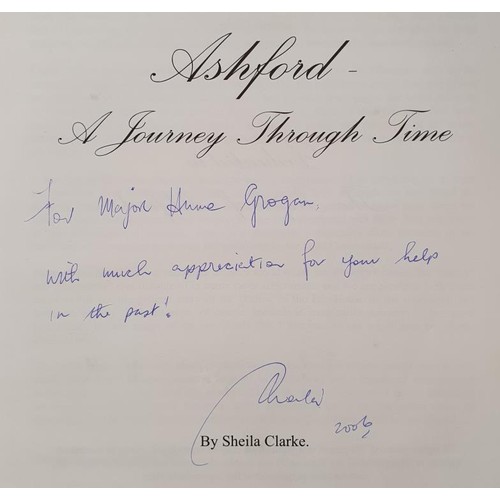 Ashford -
A Journey Through Time
For Major Hume Grogan,
with much appreciation for your help
in the past!
2006
By Sheila Clarke.